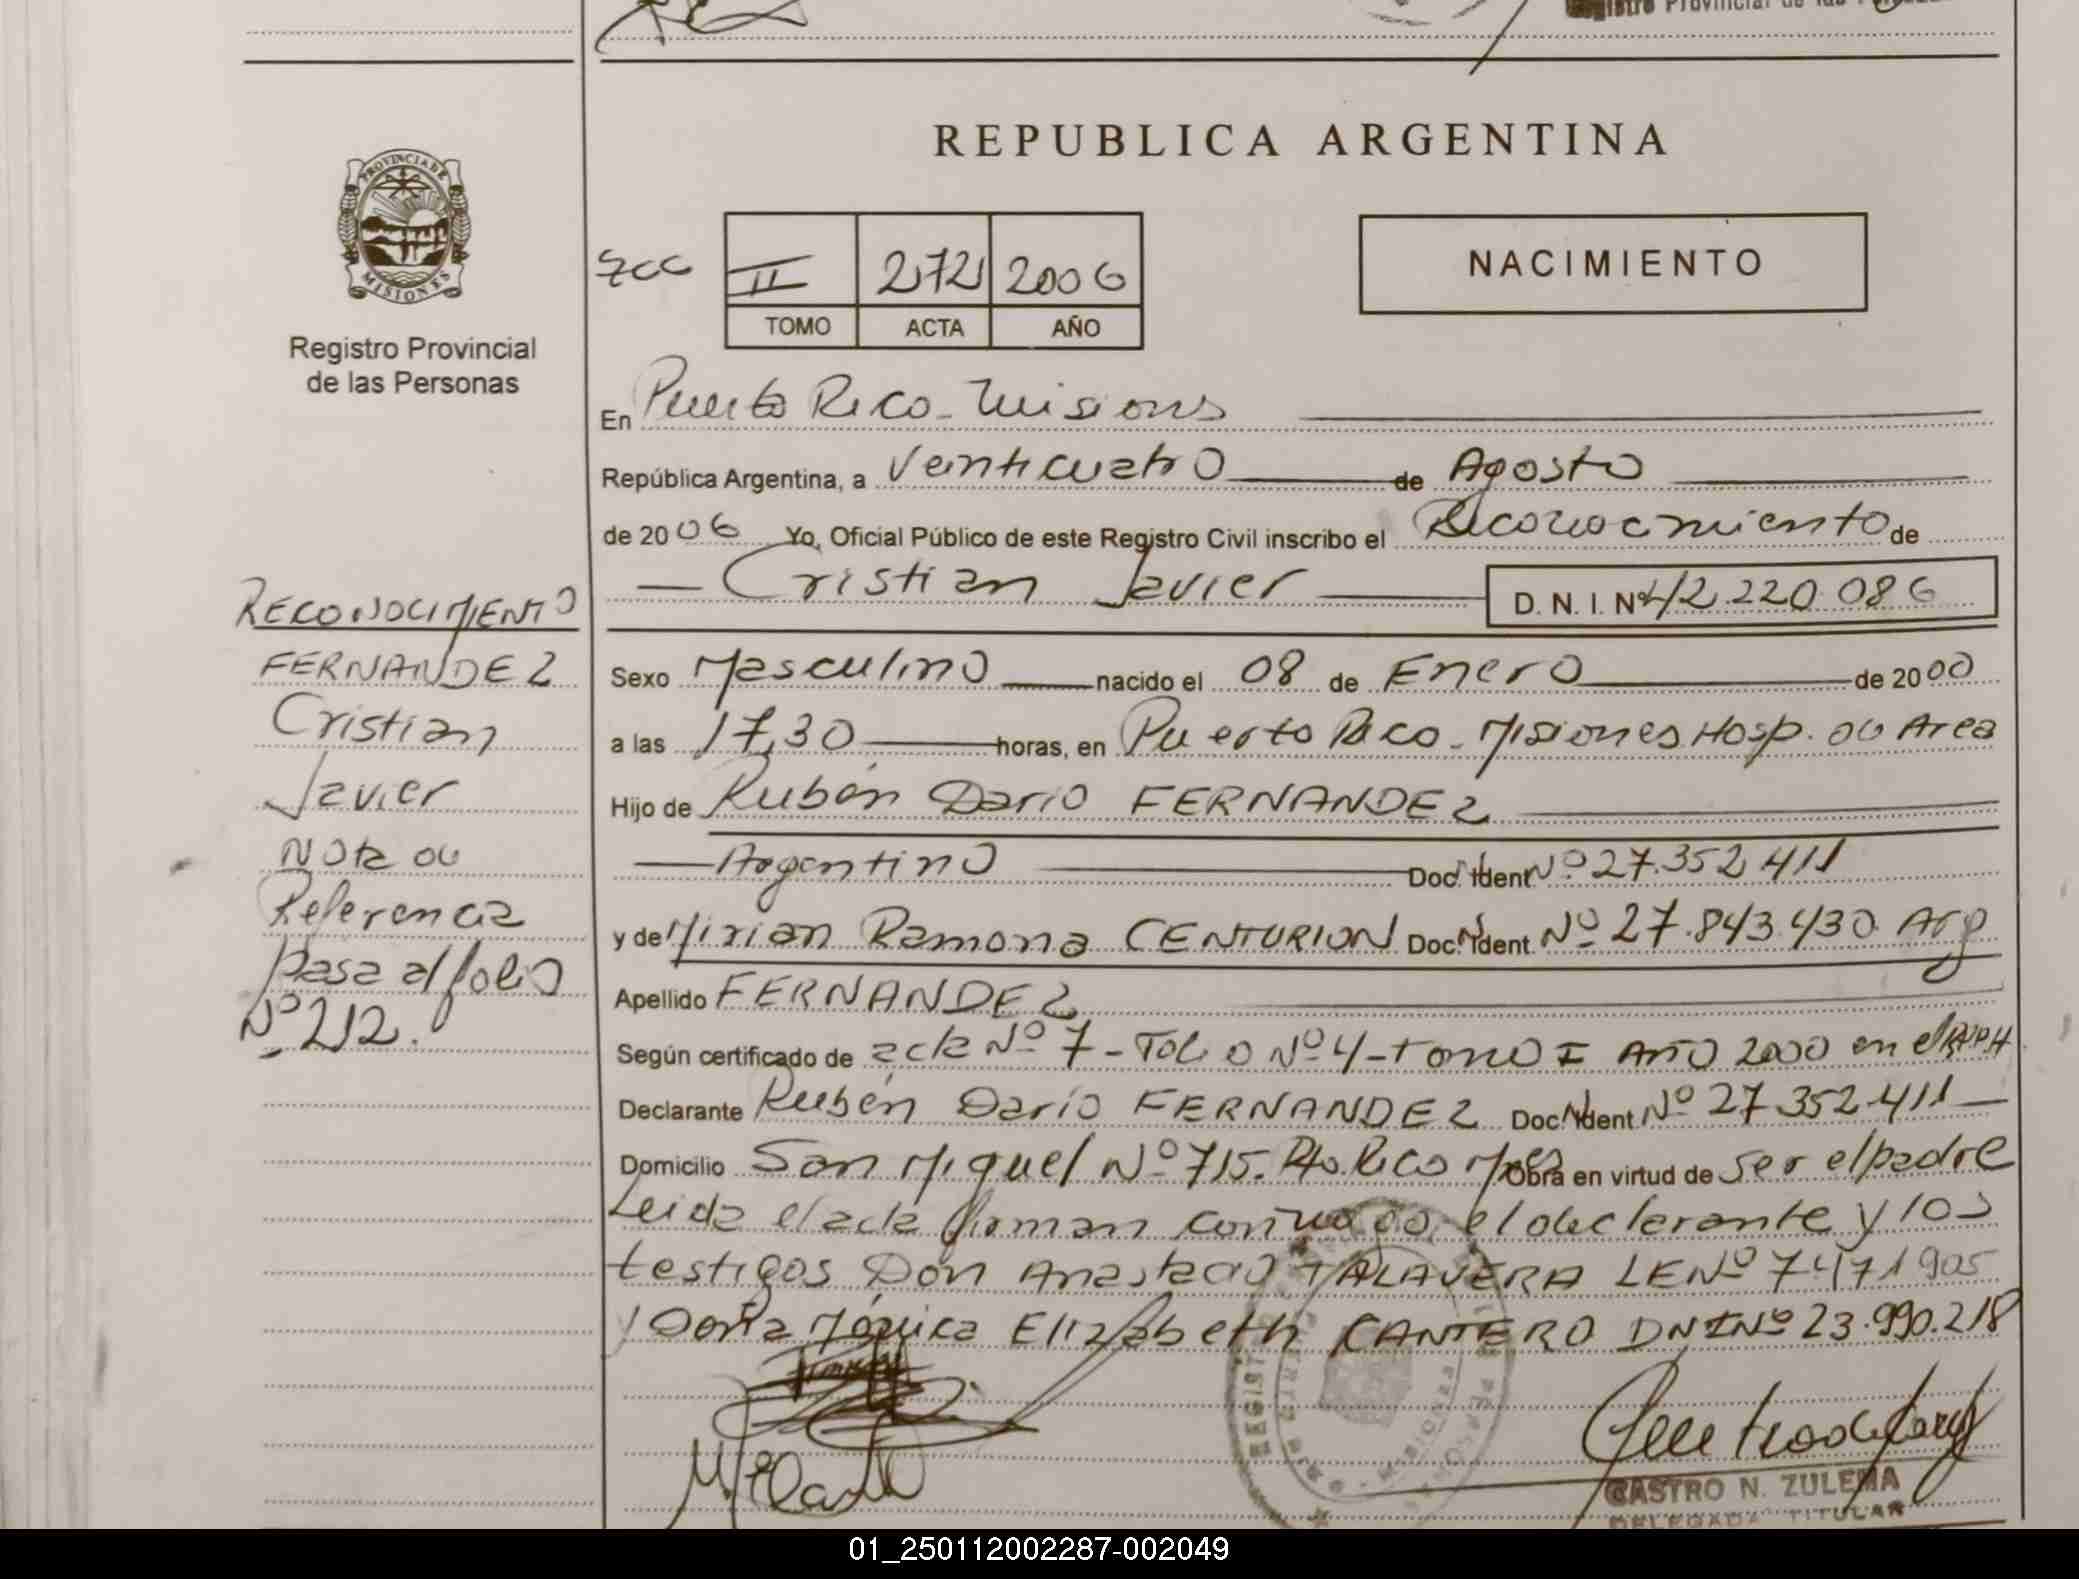 Registro Provincial de las Personas
PROVINCIA DE
MISIONES
Registro Provincial
de las Personas
REPUBLICA ARGENTINA
II 272 2006
TOMO ACTA AÑO
NACIMIENTO
En Puerto Rico - Misiones
República Argentina, a Veinticuatro de Agosto
de 2006 Yo, Oficial Público de este Registro Civil inscribo el Reconocimiento de
Cristian Javier D. N. I. Nº 42.220.086
Sexo Masculino nacido el 08 de Enero de 2000
a las 17,30 horas, en Puerto Rico - Misiones Hosp. de Area
Hijo de Rubén Dario FERNANDEZ
Argentino Doc. Ident. Nº 27.352.411
y de Mirian Ramona CENTURION Doc. Ident. Nº 27.843.430 Arg
Apellido FERNANDEZ
Según certificado de acta Nº 7 - Folio Nº 4 - Tomo I Año 2000 en el
Declarante Rubén Darío FERNANDEZ Doc. Ident. Nº 27.352.411
Domicilio San Miguel Nº 715. Pto. Rico Mnes Obra en virtud de ser el padre
Leida el acta firman conmigo el declarante y los
testigos Don Anastacio TALAVERA LE Nº 7.471.905
y Doña Mónica Elizabeth CANTERO DNI Nº 23.990.218
RECONOCIMIENTO
FERNANDEZ
Cristian
Javier
Nota de
Referencia
Pasa al folio
Nº 212.
CASTRO N. ZULEMA
DELEGADA TITULAR
01_250112002287-002049